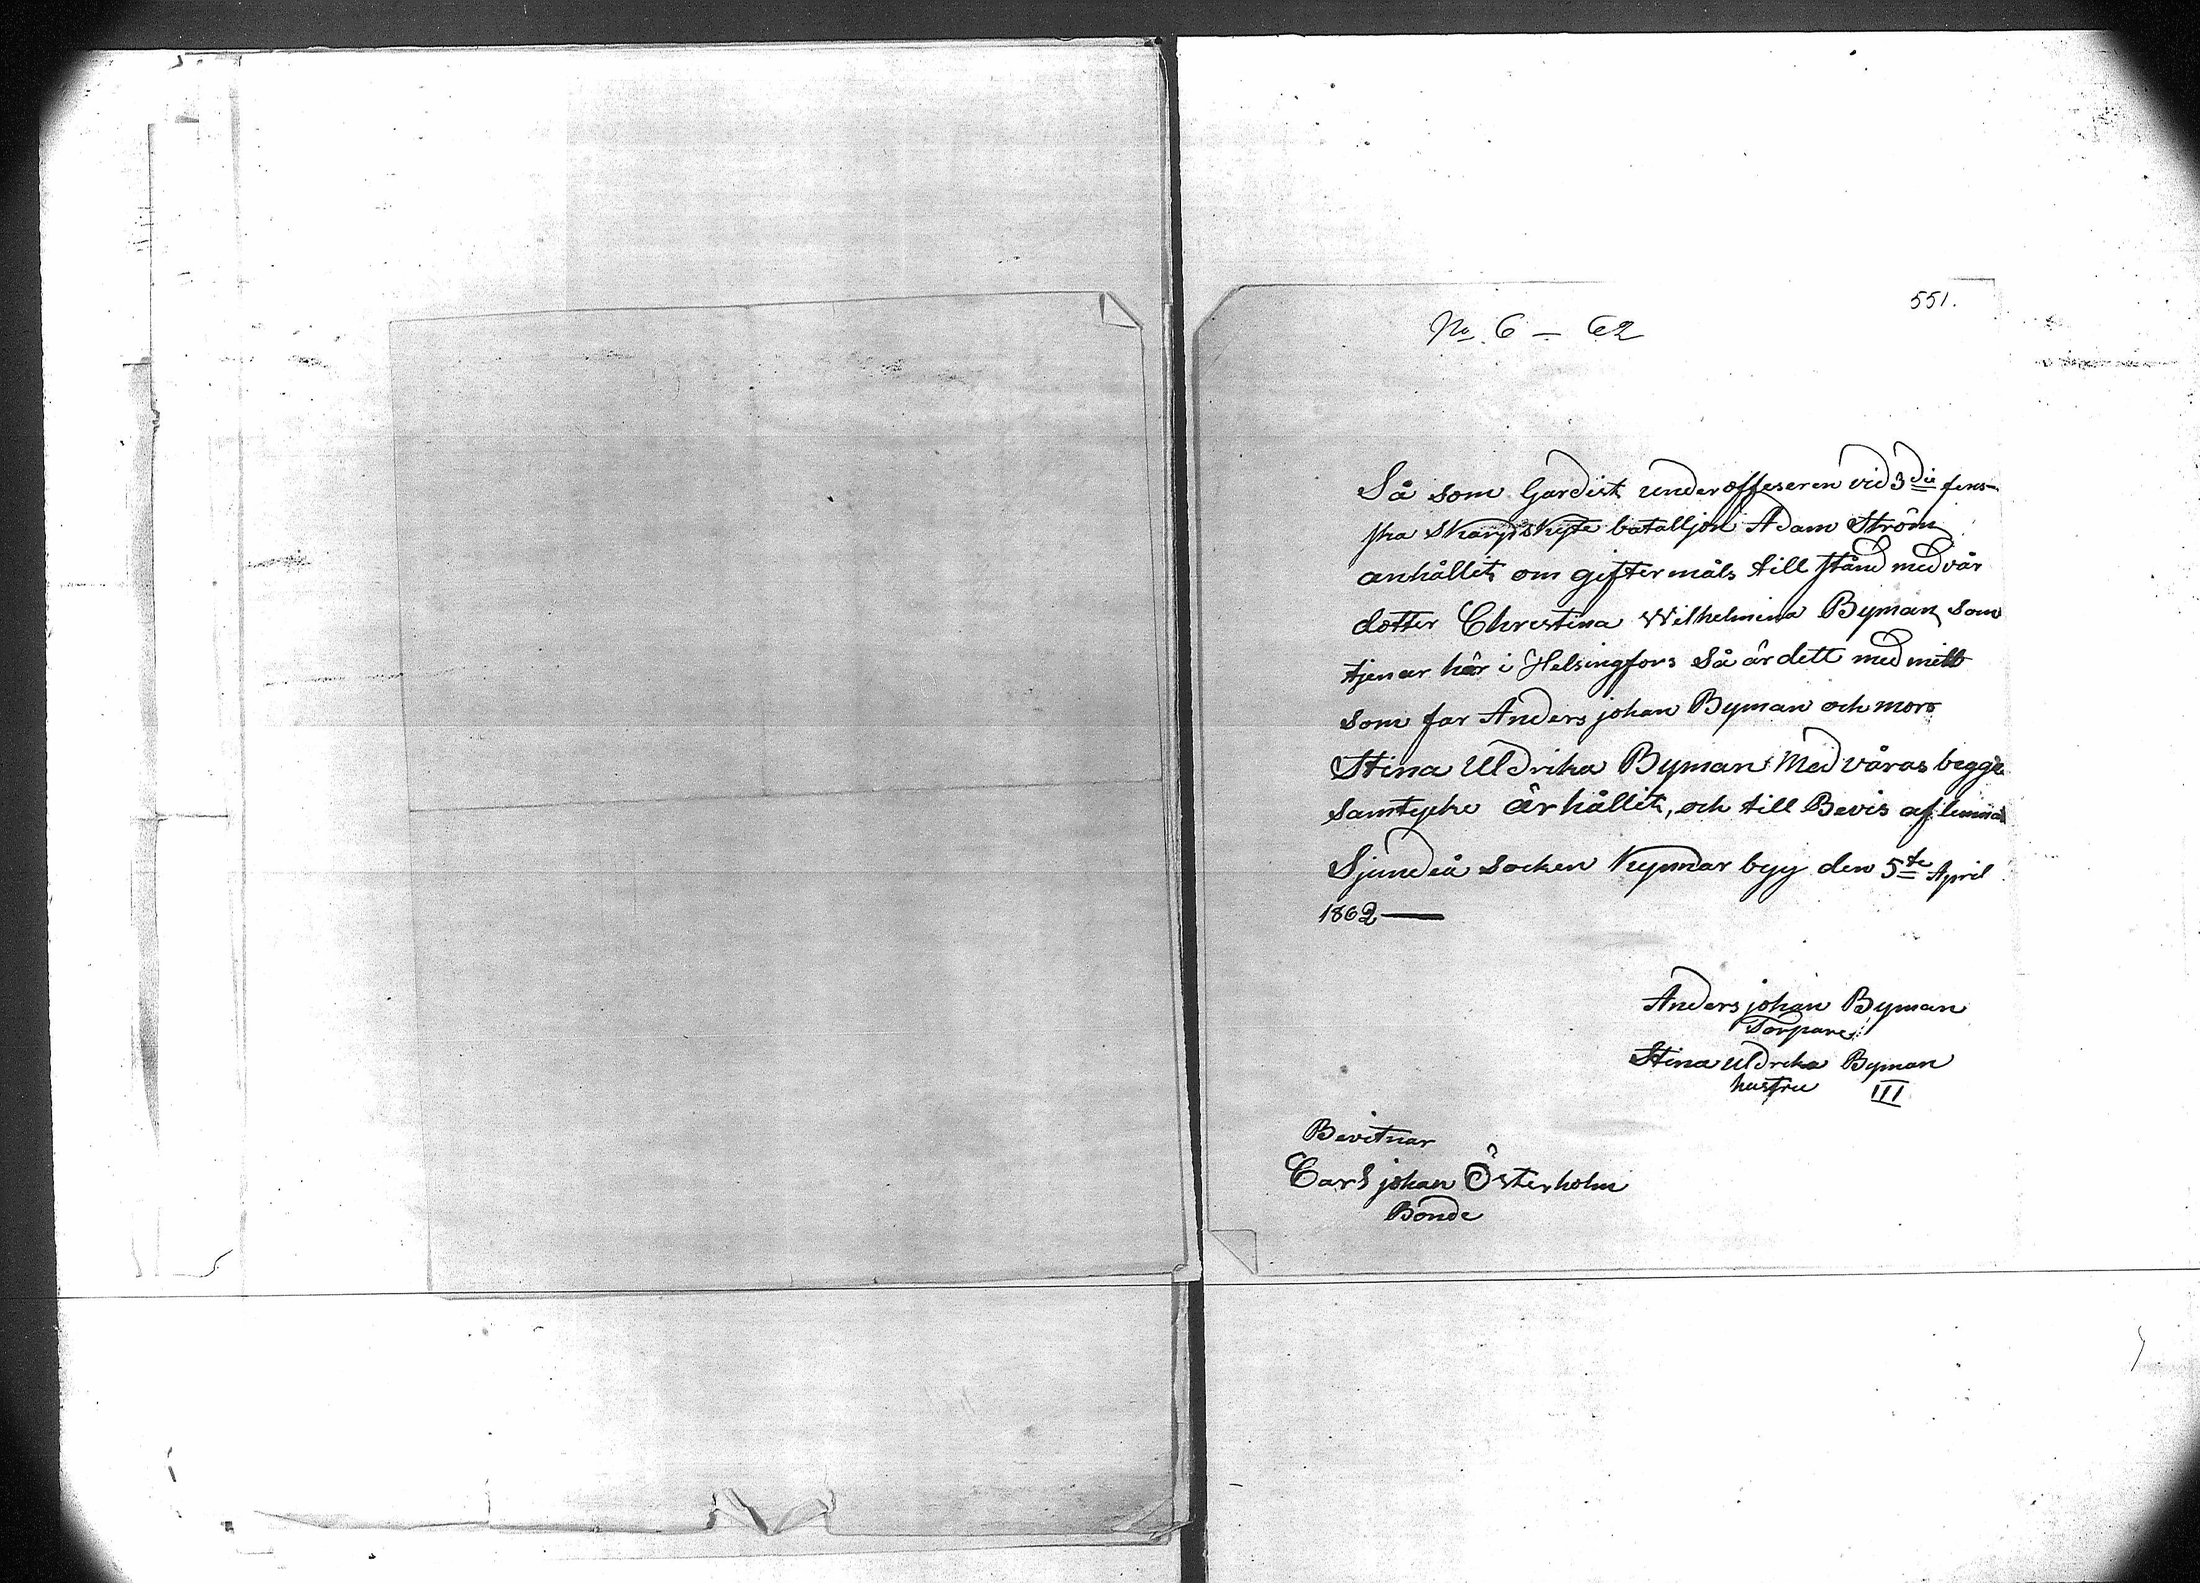 551.
No 6 – 62
Så som Gardist underoffeseren vid 3die fins-
ska Skarpskytte bataljon Adam Ström
anhållit om giftermåls till stånd med vår
dotter Christina Wilhelmina Byman som
tjenar här i Helsingfors Så är dett med mitt
som far Anders johan Byman och mors
Stina Uldrika Byman Med våras begge
samtycke är hållit, och till Bevis af lemna
Sjundeå socken byy den 5te April
1862 —
Anders johan Byman
Torpare
Stina Uldrika Byman
hustru III
Bevitnar
Carl johan Österholm
Bonde